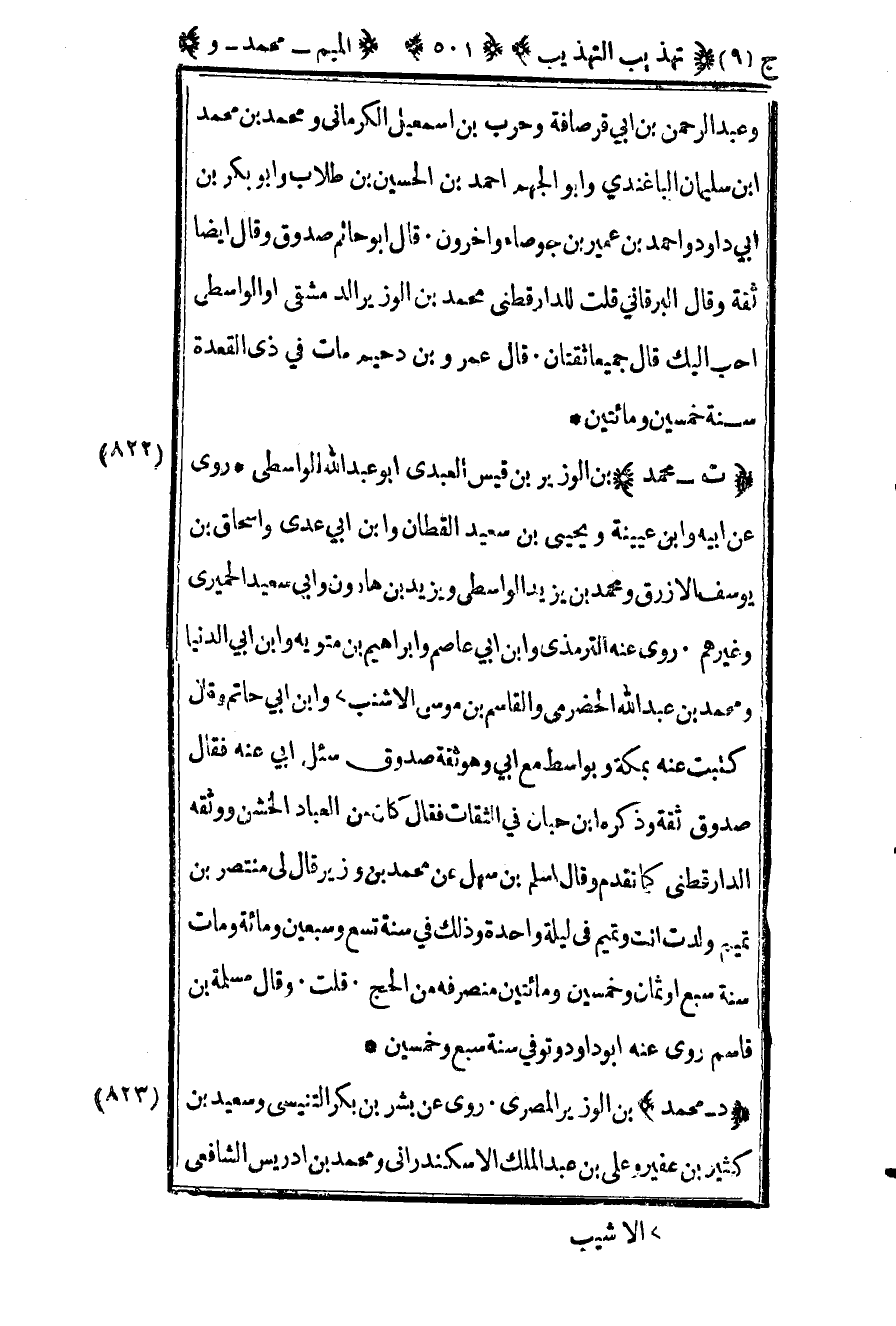 ج (٩) ﴿ تهذيب التهذيب ﴾ ﴿ ٥٠١ ﴾ ﴿ الميم ـ محمد ـ و ﴾
وعبدالرحمن بن ابي قرصافة وحرب بن اسمعيل الكرمانى ومحمد بن محمد
ابن سليمان الباغندي وابو الجهم احمد بن الحسين بن طلاب وابو بكر بن
ابي داود واحمد بن عمير بن جوصاء واخرون ٠ قال ابو حاتم صدوق وقال ايضا
ثقة وقال البرقاني قلت للدارقطنى محمد بن الوزير الدمشقى اوالواسطى
احب اليك قال جميعا ثقتان ٠ قال عمرو بن دحيم مات في ذى القعدة
سنة خمسين ومائتين *
(٨٢٢)
﴿ ت ـ محمد ﴾ بن الوزير بن قيس العبدى ابو عبدالله الواسطى * روى
عن ابيه وابن عيينة ويحيى بن سعيد القطان وابن ابي عدى واسحاق بن
يوسف الازرق ومحمد بن يزيد الواسطى ويزيد بن هارون وابي سعيد الحميرى
وغيرهم ٠ روى عنه الترمذى وابن ابي عاصم وابراهيم بن متويه وابن ابي الدنيا
ومحمد بن عبدالله الحضرمى والقاسم بن موسى الاشنب > وابن ابي حاتم وقال
كتبت عنه بمكة وبواسط مع ابي وهو ثقة صدوق سئل ابي عنه فقال
صدوق ثقة وذكره ابن حبان في الثقات فقال كان من العباد الخشن ووثقه
الدارقطنى كما تقدم وقال اسلم بن سهل عن محمد بن وزير قال لى منتصر بن
تميم ولدت انت وتميم فى ليلة واحدة وذلك في سنة تسع وسبعين ومائة ومات
سنة سبع اوثمان وخمسين ومائتين منصرفه من الحج ٠ قلت ٠ وقال مسلمة بن
قاسم روى عنه ابوداود وتوفي سنة سبع وخمسين *
(٨٢٣)
﴿ د ـ محمد ﴾ بن الوزير المصرى ٠ روى عن بشر بن بكر التنيسى وسعيد بن
كثير بن عفير وعلى بن عبدالملك الاسكندرانى ومحمد بن ادريس الشافعى
> الاشيب